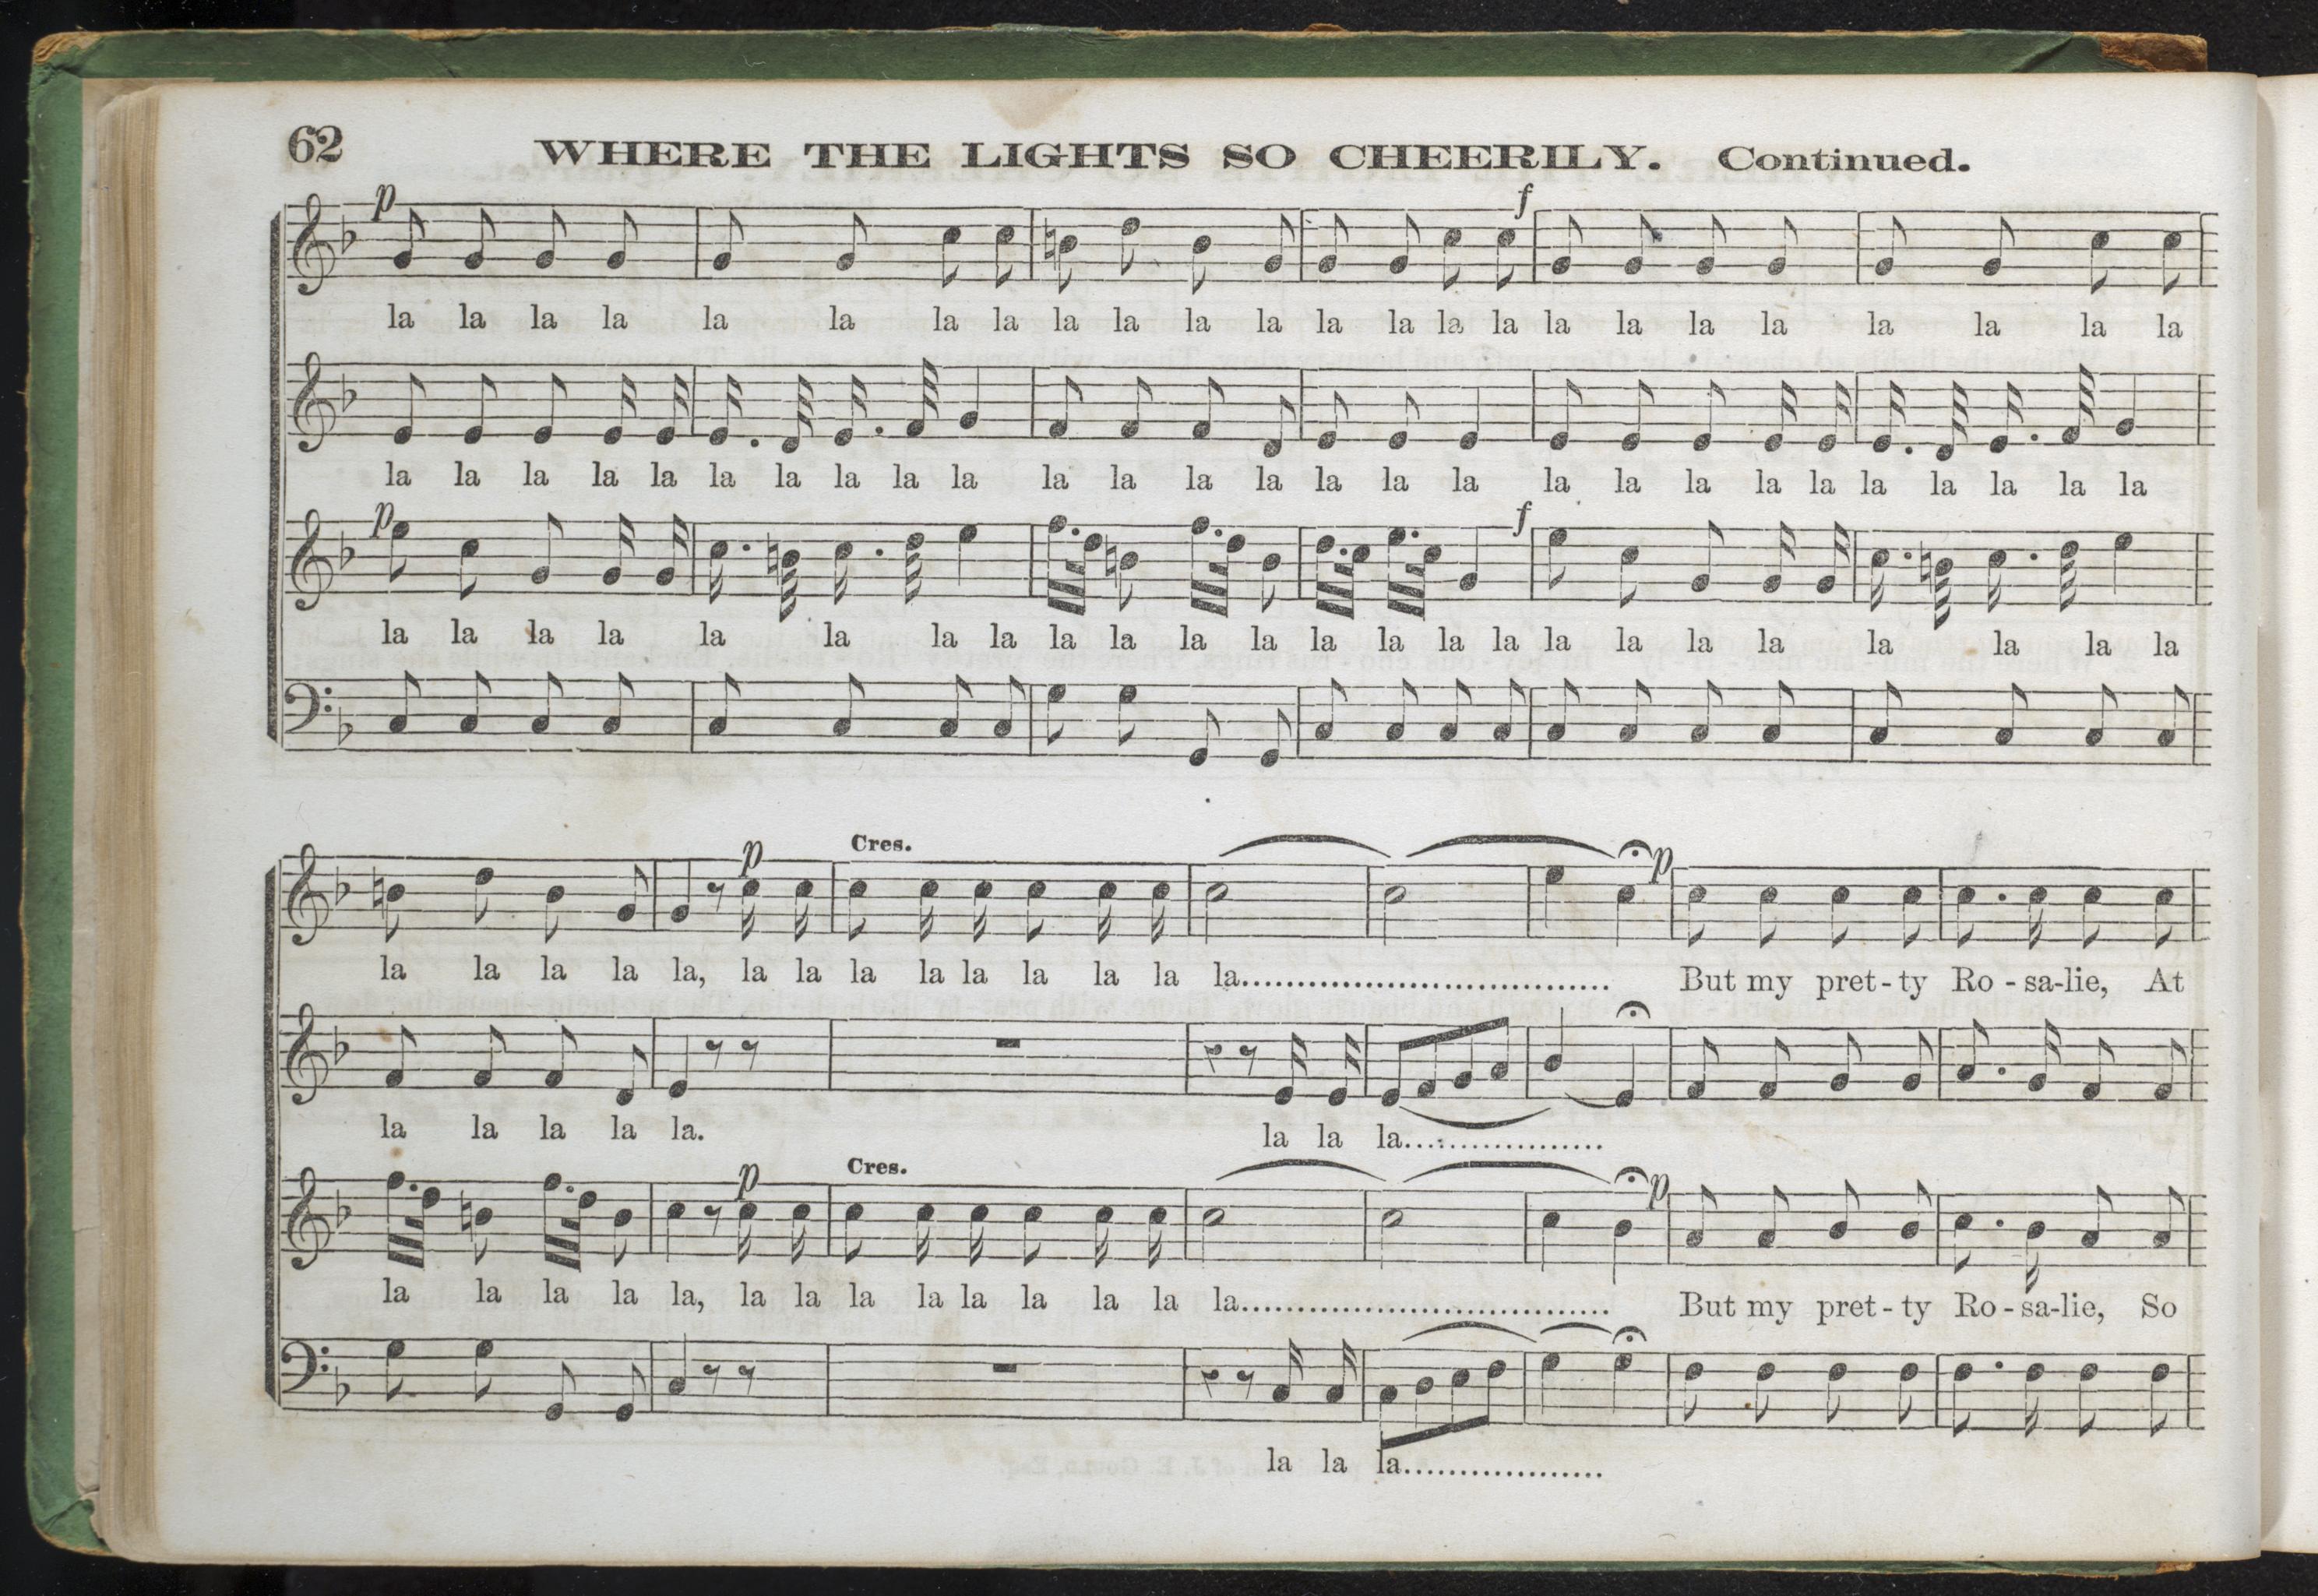 62 WHERE THE LIGHTS SO CHEERILY. Continued.
p f
la la la la la la la la la la la la la la la la la la la la la la la la
la la la la la la la la la la la la la la la la la la la la la la la la la la la
p f
la la la la la la la la la la la la la la la la la la la la la la la la
p Cres. p
la la la la la, la la la la la la la la la.................................. But my pret-ty Ro-sa-lie, At
la la la la la. la la la..................
p Cres. p
la la la la la, la la la la la la la la la.................................. But my pret-ty Ro-sa-lie, So
la la la..................